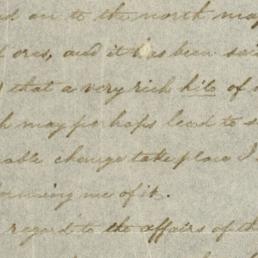 on to the north may
ores, and it has been sai
that a very rich kilo of
may perhaps lead to s
able change take place I
me of it.
regard to the affairs of th